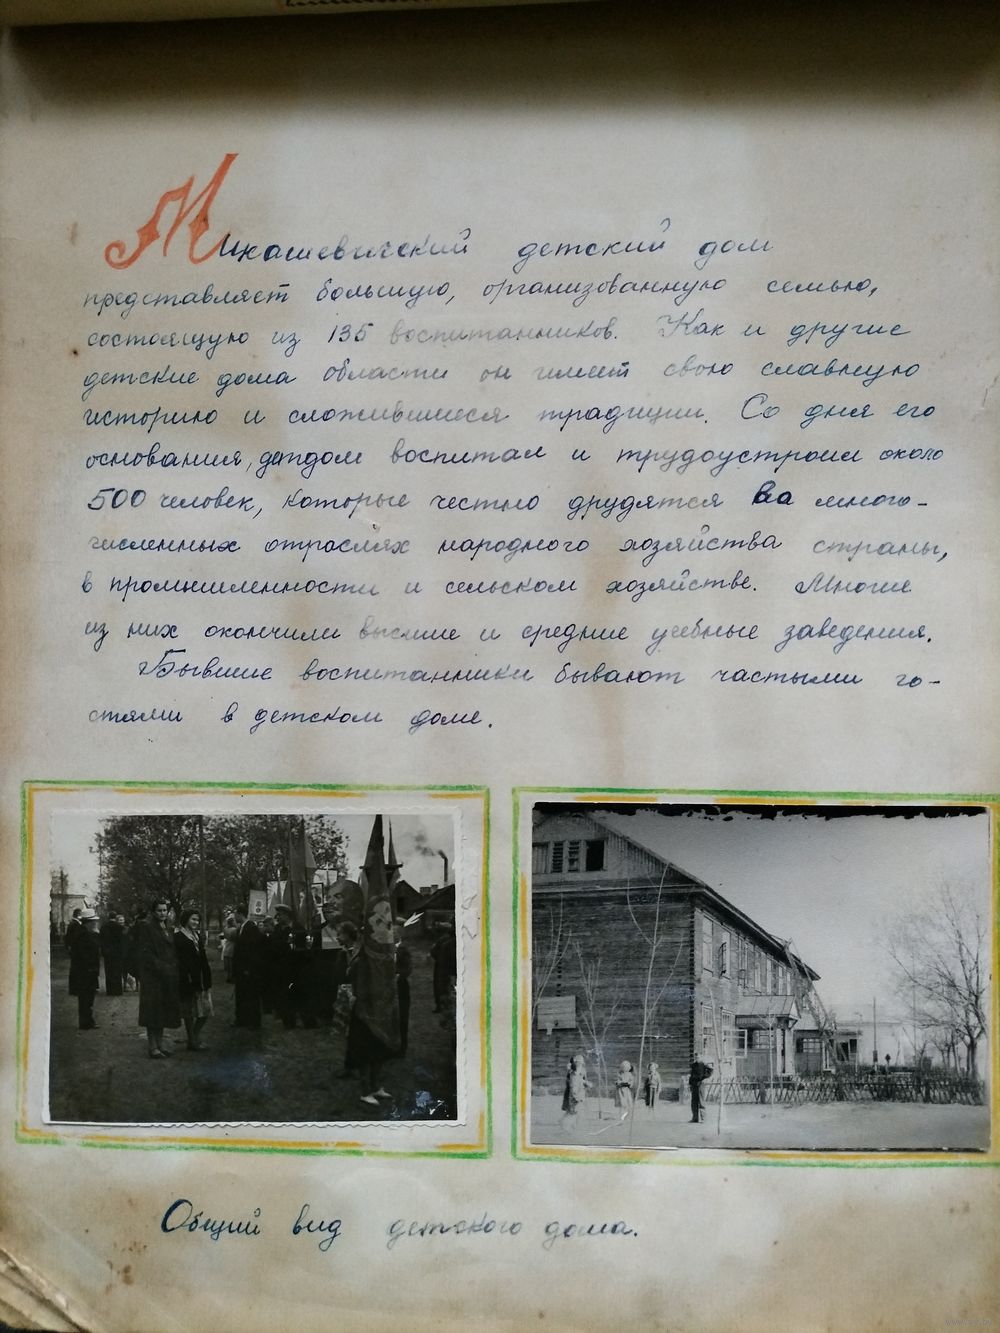 Микашевичский детский дом
представляет большую, организованную семью,
состоящую из 135 воспитанников. Как и другие
детские дома области он имеет свою славную
историю и сложившиеся традиции. Со дня его
основания, детдом воспитал и трудоустроил около
500 человек, которые честно друдятся ва много-
численных отраслях народного хозяйства страны,
в промышленности и сельском хозяйстве. Многие
из них окончили высшие и средние учебные заведения.
Бывшие воспитанники бывают частыми го-
стями в детском доме.
Общий вид детского дома.